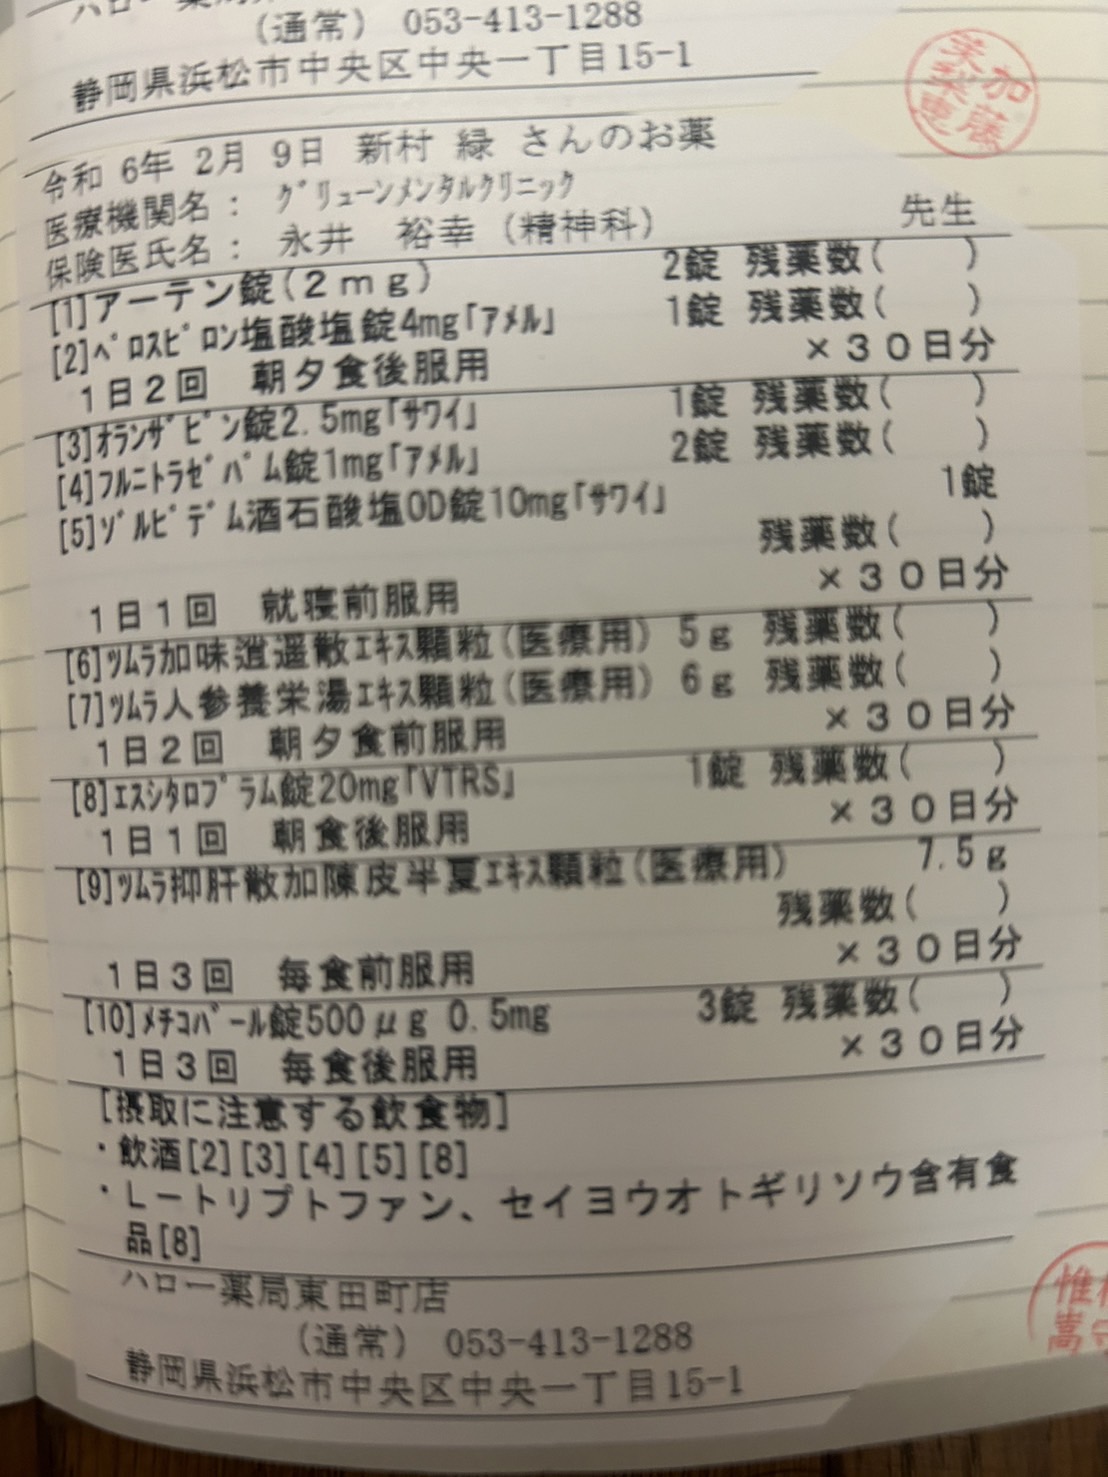 (通常) 053-413-1288
静岡県浜松市中央区中央一丁目15-1
加藤
令和 6年 2月 9日 新村 緑 さんのお薬
医療機関名: グリューンメンタルクリニック
保険医氏名: 永井 裕幸 (精神科) 先生
[1]アーテン錠(2mg) 2錠 残薬数( )
[2]ペロスピロン塩酸塩錠4mg「アメル」 1錠 残薬数( )
1日2回 朝夕食後服用 ×30日分
[3]オランザピン錠2.5mg「サワイ」 1錠 残薬数( )
[4]フルニトラゼパム錠1mg「アメル」 2錠 残薬数( )
[5]ゾルピデム酒石酸塩OD錠10mg「サワイ」 1錠
残薬数( )
1日1回 就寝前服用 ×30日分
[6]ツムラ加味逍遥散エキス顆粒(医療用) 5g 残薬数( )
[7]ツムラ人参養栄湯エキス顆粒(医療用) 6g 残薬数( )
1日2回 朝夕食前服用 ×30日分
[8]エスシタロプラム錠20mg「VTRS」 1錠 残薬数( )
1日1回 朝食後服用 ×30日分
[9]ツムラ抑肝散加陳皮半夏エキス顆粒(医療用) 7.5g
残薬数( )
1日3回 毎食前服用 ×30日分
[10]メチコバール錠500μg 0.5mg 3錠 残薬数( )
1日3回 毎食後服用 ×30日分
[摂取に注意する飲食物]
・飲酒[2][3][4][5][8]
・L-トリプトファン、セイヨウオトギリソウ含有食
品[8]
ハロー薬局東田町店
(通常) 053-413-1288
静岡県浜松市中央区中央一丁目15-1